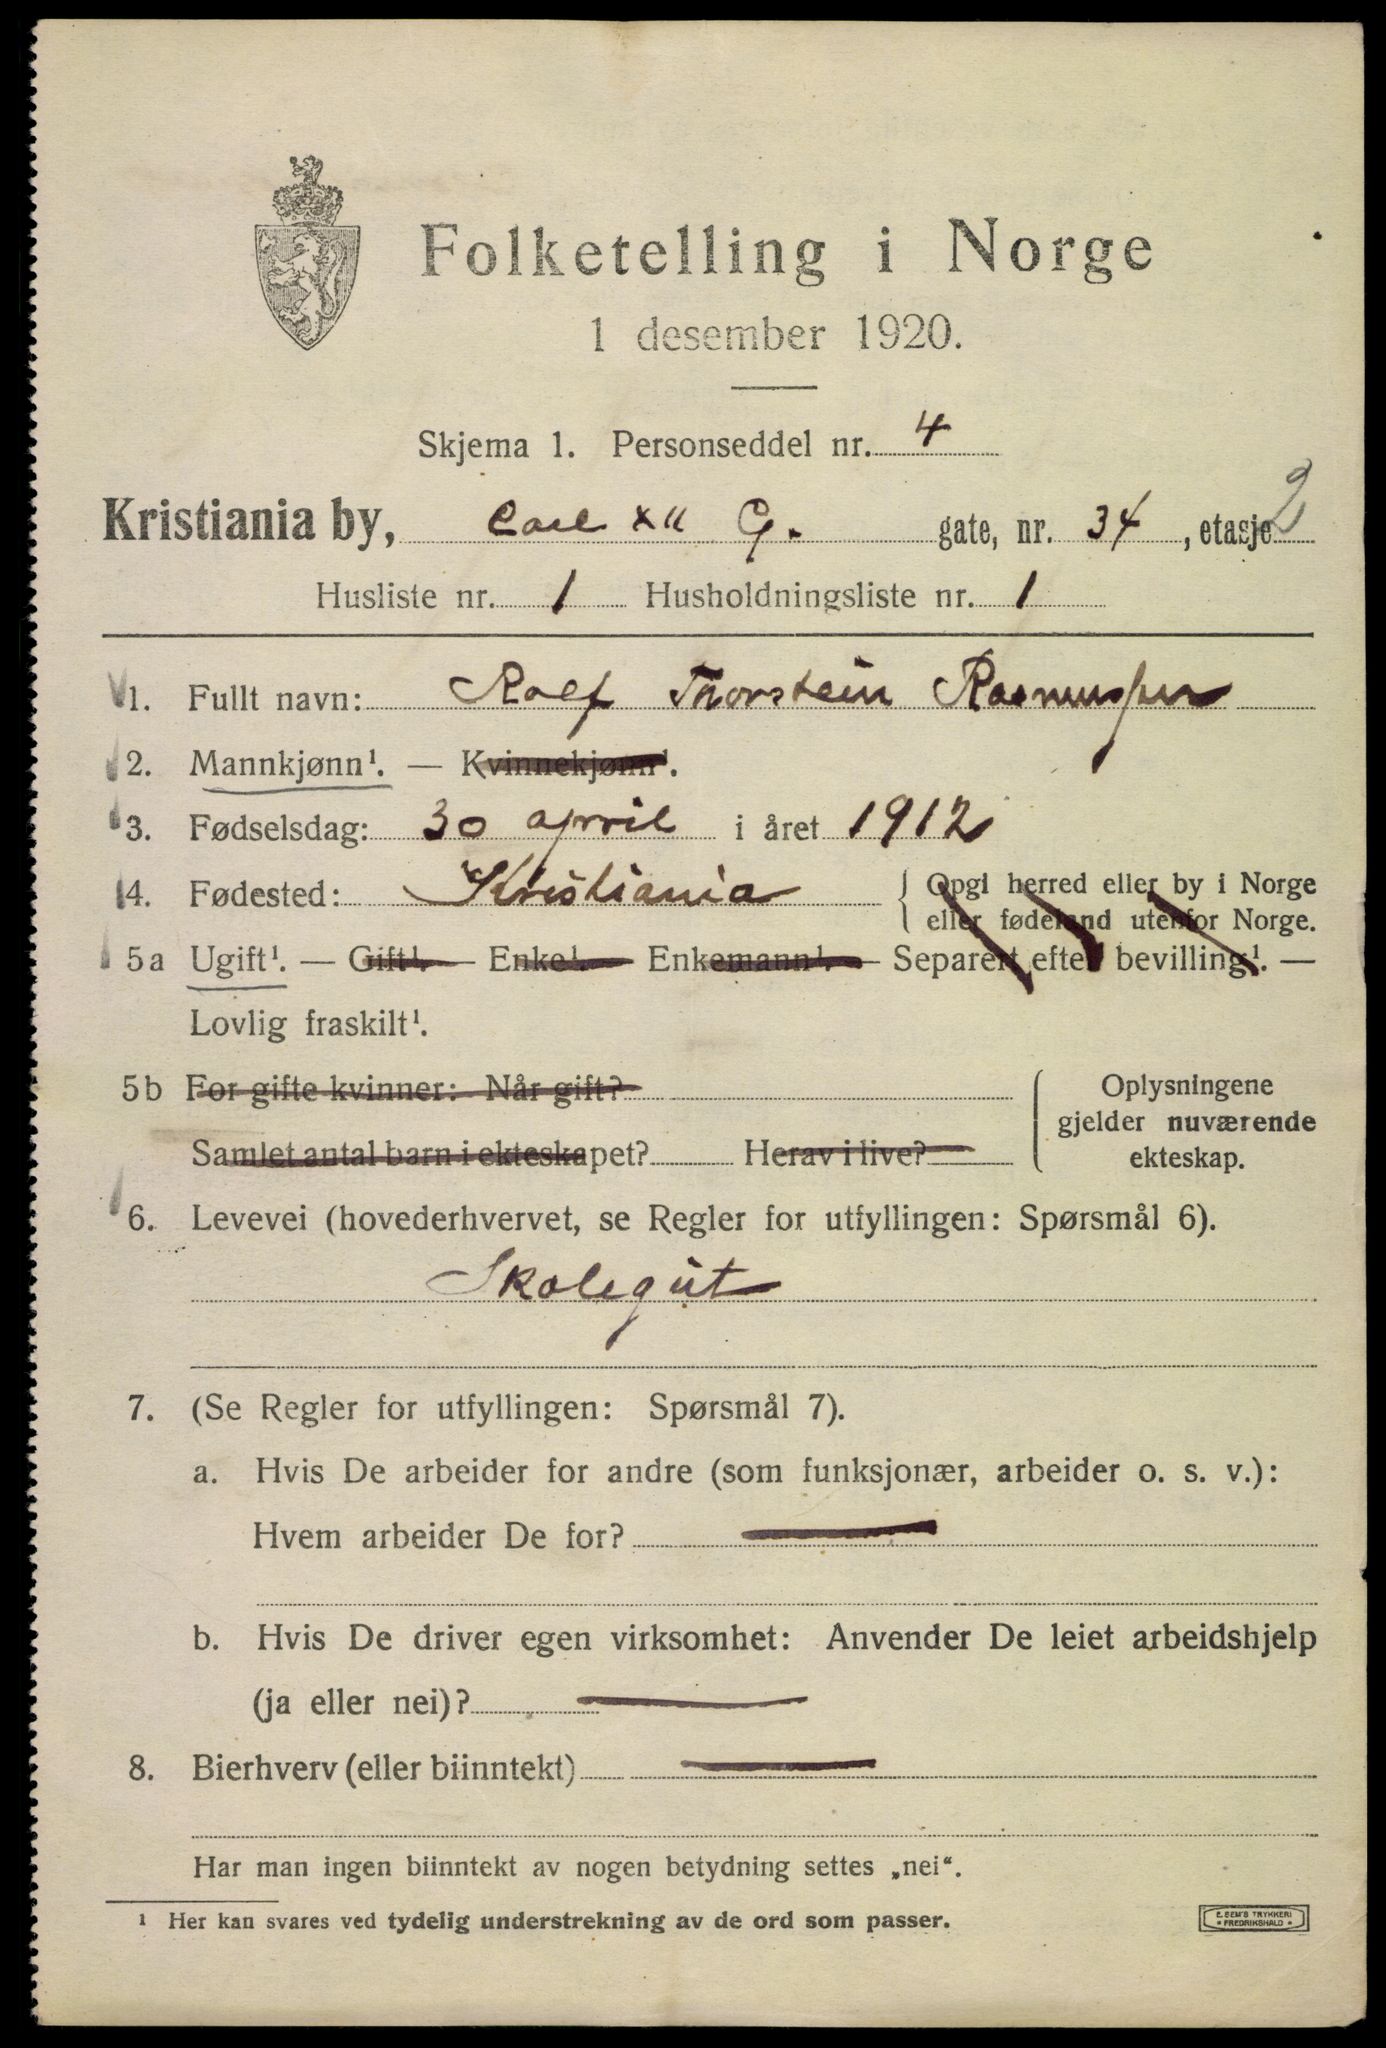 Folketelling i Norge
1 desember 1920.
Skjema 1. Personseddel nr. 4
Kristiania by, Carl XII G. gate, nr. 34, etasje 2
Husliste nr. 1 Husholdningsliste nr. 1
1. Fullt navn: Rolf Thorstein Rasmussen
2. Mannkjønn¹. — Kvinnekjønn¹.
3. Fødselsdag: 30 april i året 1912
4. Fødested: Kristiania { Opgi herred eller by i Norge
eller fødeland utenfor Norge.
5a Ugift¹. — Gift¹. — Enke¹. — Enkemann¹. — Separert efter bevilling¹. —
Lovlig fraskilt¹.
5b For gifte kvinner: Når gift?
Samlet antal barn i ekteskapet? Herav i live?
Oplysningene
gjelder nuværende
ekteskap.
6. Levevei (hovederhvervet, se Regler for utfyllingen: Spørsmål 6).
Skolegut
7. (Se Regler for utfyllingen: Spørsmål 7).
a. Hvis De arbeider for andre (som funksjonær, arbeider o. s. v.):
Hvem arbeider De for? —
b. Hvis De driver egen virksomhet: Anvender De leiet arbeidshjelp
(ja eller nei)? —
8. Bierhverv (eller biinntekt) —
Har man ingen biinntekt av nogen betydning settes „nei“.
¹ Her kan svares ved tydelig understrekning av de ord som passer.
E. SEM'S TRYKKERI
• FREDRIKSHALD •